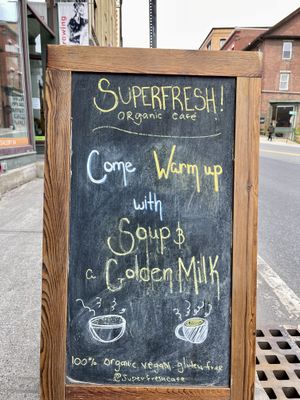 SUPERFRESH!
ORGANIC CAFÉ
Come Warm up
with
Soup &
a Golden MILK
100% organic, vegan, gluten-free
@superfreshcafe